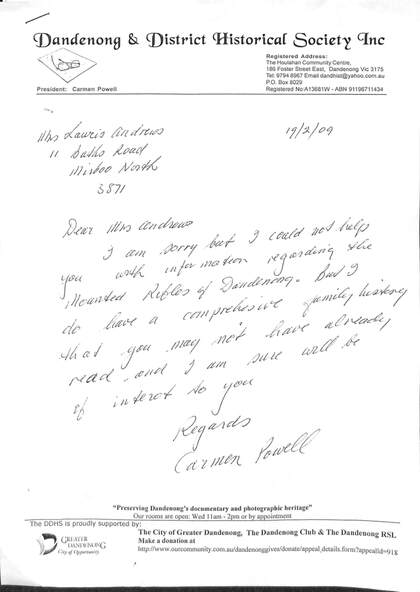 Dandenong & District Historical Society Inc
Registered Address:
The Houlahan Community Centre,
186 Foster Street East, Dandenong Vic 3175
Tel: 9794 8967 Email dandhist@yahoo.com.au
P.O. Box 8029
Registered No:A13681W - ABN 91196711434
President: Carmen Powell
Mrs Lauris Andrews
19/2/09
11 Baths Road
Mirboo North
3871
Dear Mrs Andrews
I am sorry but I could not help
you with information regarding the
Mounted Rifles of Dandenong. But I
do have a comprehesive family history
that you may not have already
read and I am sure will be
of interest to you
Regards
Carmen Powell
"Preserving Dandenong's documentary and photographic heritage"
Our rooms are open: Wed 11am - 2pm or by appointment
The DDHS is proudly supported by:
GREATER
DANDENONG
City of Opportunity
The City of Greater Dandenong, The Dandenong Club & The Dandenong RSL
Make a donation at
http://www.ourcommunity.com.au/dandenonggives/donate/appeal_details.form?appealId=918